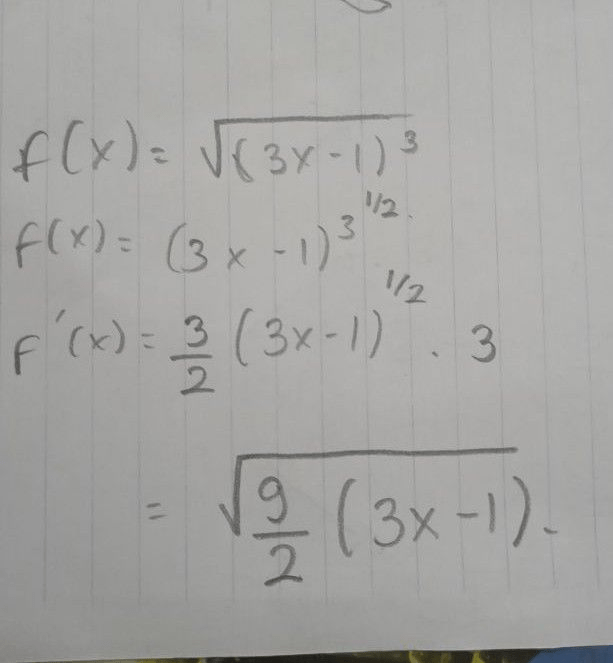 f(x) = √((3x-1)³)
f(x) = (3x-1)^3^1/2.
f'(x) = 3/2 (3x-1)^1/2 . 3
= √(9/2 (3x-1)).